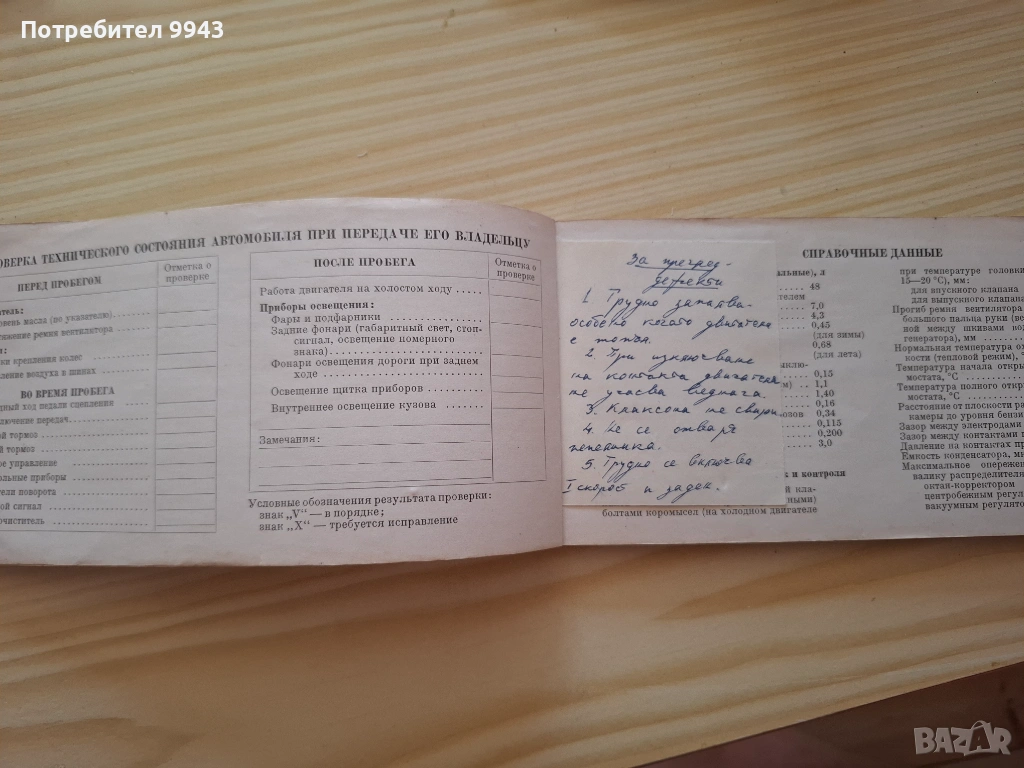 Потребител 9943
ОВЕРКА ТЕХНИЧЕСКОГО СОСТОЯНИЯ АВТОМОБИЛЯ ПРИ ПЕРЕДАЧЕ ЕГО ВЛАДЕЛЬЦУ
ПЕРЕД ПРОБЕГОМ
Отметка о проверке
атель:
овень масла (по указателю)
тяжение ремня вентилятора
и:
ки крепления колес
ление воздуха в шинах
ВО ВРЕМЯ ПРОБЕГА
дный ход педали сцепления
ключение передач
ой тормоз
й тормоз
ое управление
ельные приборы
тели поворота
ой сигнал
очиститель
ПОСЛЕ ПРОБЕГА
Отметка о проверке
Работа двигателя на холостом ходу
Приборы освещения:
Фары и подфарники
Задние фонари (габаритный свет, стоп-
сигнал, освещение номерного
знака)
Фонари освещения дороги при заднем
ходе
Освещение щитка приборов
Внутреннее освещение кузова
Замечания:
Условные обозначения результата проверки:
знак „V“ — в порядке;
знак „X“ — требуется исправление
За преглед-
дефекти
1. Трудно запалва-
особено когато двигателя
е топъл.
2. При изключване
на контакта двигателя
не угасва веднага.
3. Клаксона не свири
4. Не се отваря
пепелника.
5. Трудно се включва
I скорост и заден.
СПРАВОЧНЫЕ ДАННЫЕ
альные), л
48
ателем
7,0
4,3
0,45
(для зимы)
0,68
(для лета)
0,15
1,1
1,40
0,16
0,34
0,115
0,200
3,0
к и контроля
й кла-
ными)
болтами коромысел (на холодном двигателе
при температуре головки
15—20 °С), мм:
для впускного клапана
для выпускного клапана
Прогиб ремня вентилятора
большого пальца руки (вес
ной между шкивами вод
генератора), мм
Нормальная температура ох
кости (тепловой режим), °
Температура начала открыт
мостата, °С
Температура полного откры
мостата, °С
Расстояние от плоскости ра
камеры до уровня бензи
Зазор между электродами
Зазор между контактами п
Давление на контактах пр
Емкость конденсатора, мк
Максимальное опережен
валику распределителя
октан-корректором
центробежным регул
вакуумным регулято
BAZAR